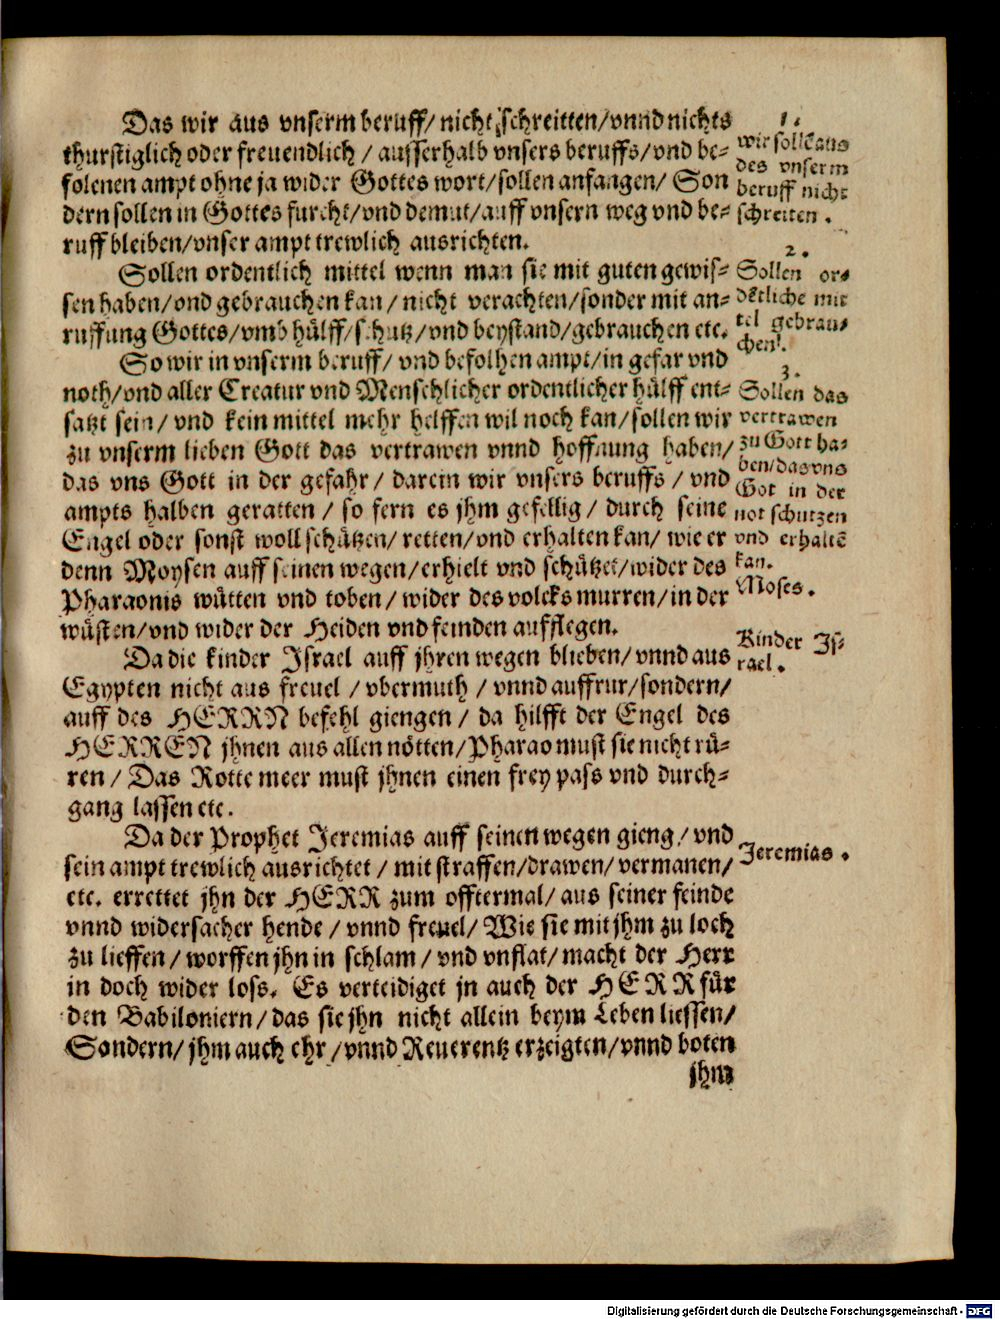 Das wir aus vnserm beruff/ nicht schreitten/ vnnd nichts
thurstiglich oder freuendlich / ausserhalb vnsers beruffs/ vnd be-
folenen ampt ohne ja wider Gottes wort/ sollen anfangen/ Son
dern sollen in Gottes furcht/ vnd demut/ auff vnsern weg vnd be-
ruff bleiben/ vnser ampt trewlich ausrichten.
Sollen ordentlich mittel wenn man sie mit guten gewis-
sen haben/ vnd gebrauchen kan / nicht verachten/ sonder mit an-
ruffung Gottes/ vmb hülff/ schutz/ vnd beystand/ gebrauchen etc.
So wir in vnserm beruff/ vnd befolhen ampt/ in gefar vnd
noth/ vnd aller Creatur vnd Menschlicher ordentlicher hülff ent-
satzt sein/ vnd kein mittel mehr helffen wil noch kan/ sollen wir
zu vnserm lieben Gott das vertrawen vnnd hoffnung haben/
das vns Gott in der gefahr/ darein wir vnsers beruffs / vnd
ampts halben geratten / so fern es jhm gefellig / durch seine
Engel oder sonst woll schützen/ retten/ vnd erhalten kan/ wie er
denn Moysen auff seinen wegen/ erhielt vnd schützet/ wider des
Pharaonis wütten vnd toben/ wider des volcks murren/ in der
wüsten/ vnd wider der Heiden vnd feinden aufflegen.
Da die kinder Israel auff jhren wegen blieben/ vnnd aus
Egypten nicht aus freuel / vbermuth / vnnd auffrur/ sondern/
auff des HERRN befehl giengen / da hilfft der Engel des
HERREN jhnen aus allen nötten/ Pharao must sie nicht rü-
ren / Das Rotte meer must jhnen einen frey pass vnd durch-
gang lassen etc.
Da der Prophet Jeremias auff seinen wegen gieng/ vnd
sein ampt trewlich ausrichtet / mit straffen/ drawen/ vermanen/
etc. errettet jhn der HERR zum offtermal/ aus seiner feinde
vnnd widersacher hende / vnnd freuel/ Wie sie mit jhm zu loch
zu lieffen / worffen jhn in schlam / vnd vnflat/ macht der Herr
in doch wider loss. Es verteidiget jn auch der HERR für
den Babiloniern/ das sie jhn nicht allein beym Leben liessen/
Sondern/ jhm auch ehr / vnnd Reuerentz erzeigten/ vnnd boten
jhm
1.
wir solle aus
des vnserm
beruff nicht
schreiten.
2.
Sollen or-
detliche mit
tel gebrau-
chen.
3.
Sollen das
vertrawen
zu Gott ha-
ben/ das vns
Got in der
not schutzen
vnd erhaltē
kan.
Moses.
Kinder Is-
rael.
Jeremias.
Digitalisierung gefördert durch die Deutsche Forschungsgemeinschaft - DFG